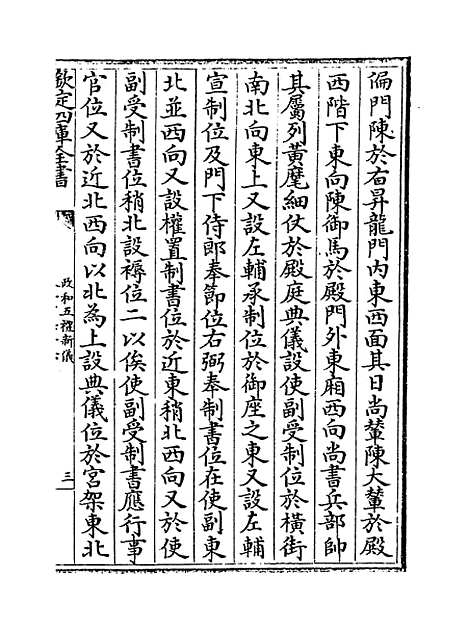 偏門陳於右昇龍門内東西面其日尚輦陳大輦於殿
西階下東向陳御馬於殿門外東廂西向尚書兵部帥
其屬列黃麾細仗於殿庭典儀設使副受制位於橫街
南北向東上又設左輔承制位於御座之東又設左輔
宣制位及門下侍郎奉節位右弼奉制書位在使副東
北並西向又設權置制書位於近東稍北西向又於使
副受制書位稍北設褥位二以俟使副受制書應行事
官位又於近北西向以北為上設典儀位於宮架東北
欽定四庫全書
政和五禮新儀
三